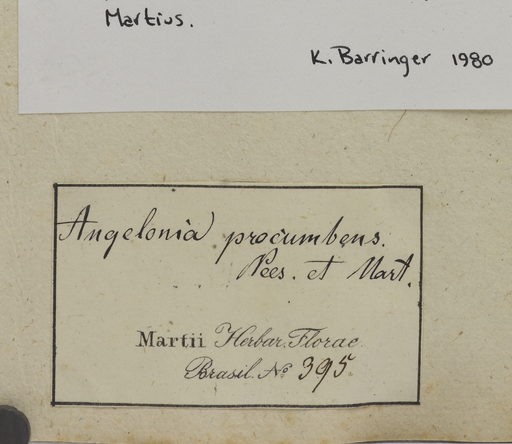 Martius.
K. Barringer 1980
Angelonia procumbens.
Nees. et Mart.
Martii Herbar. Florae
Brasil. No 395